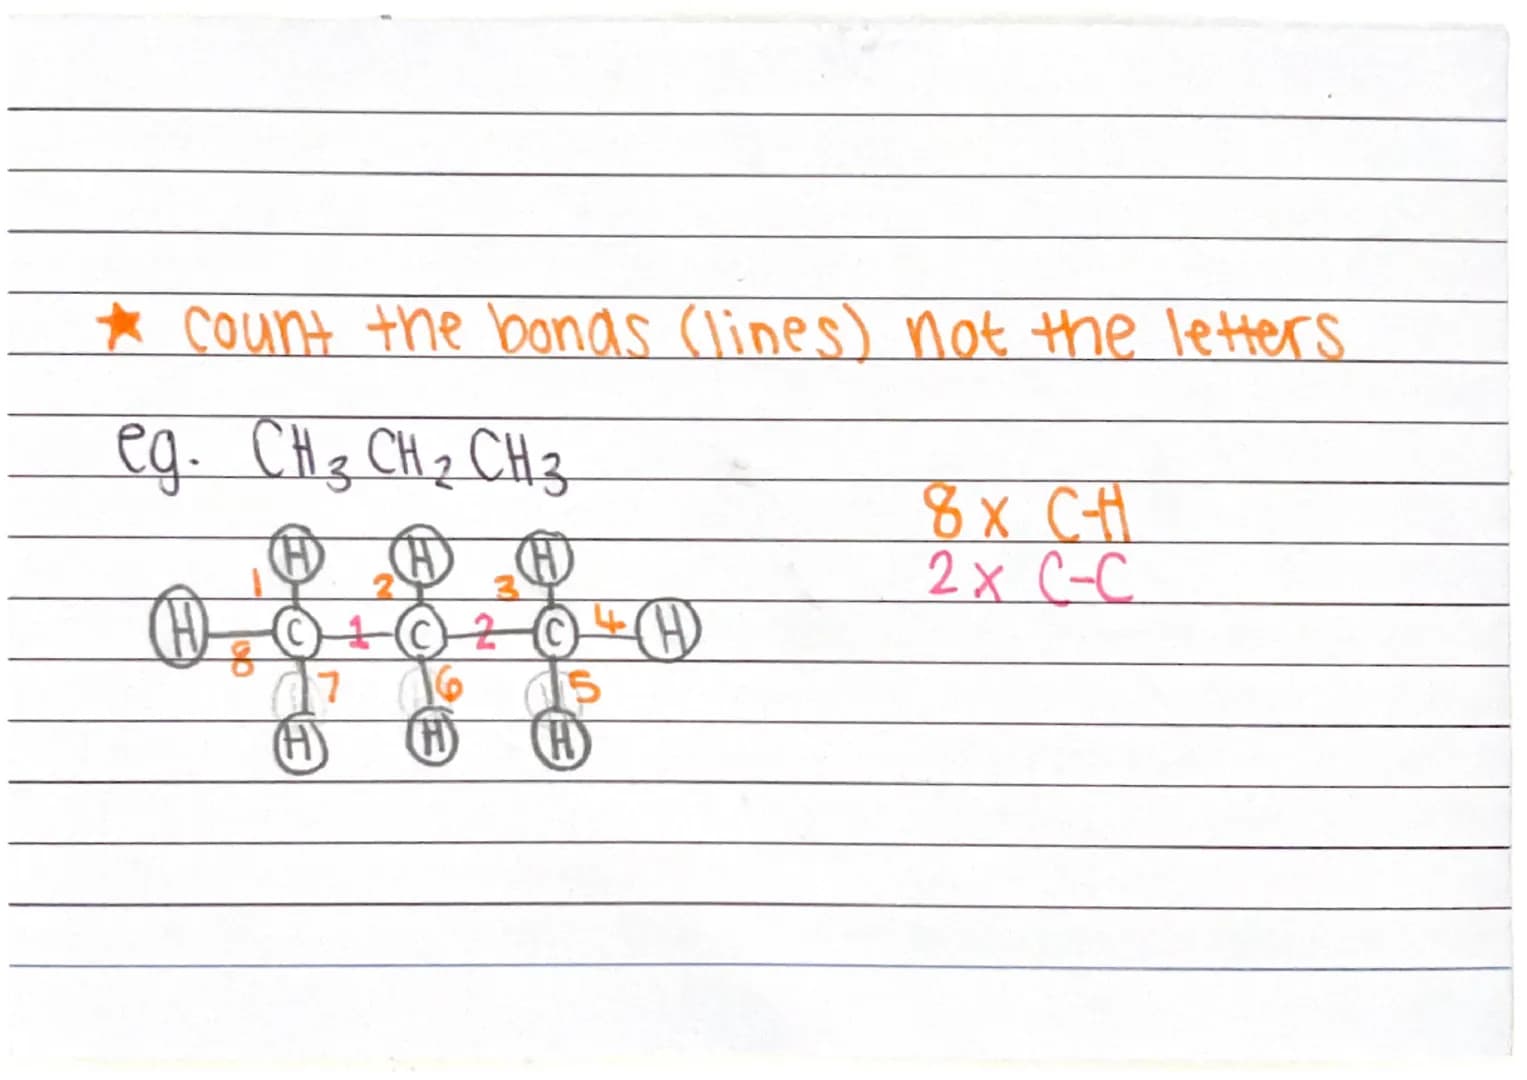 ★ count the bonds (lines) not the letters
eg. CH₃ CH₂ CH₃
8 x C-H
2 x C-C
H H H
1 2 3
H C 1 C 2 C 4 H
8 7 6 5
H H H